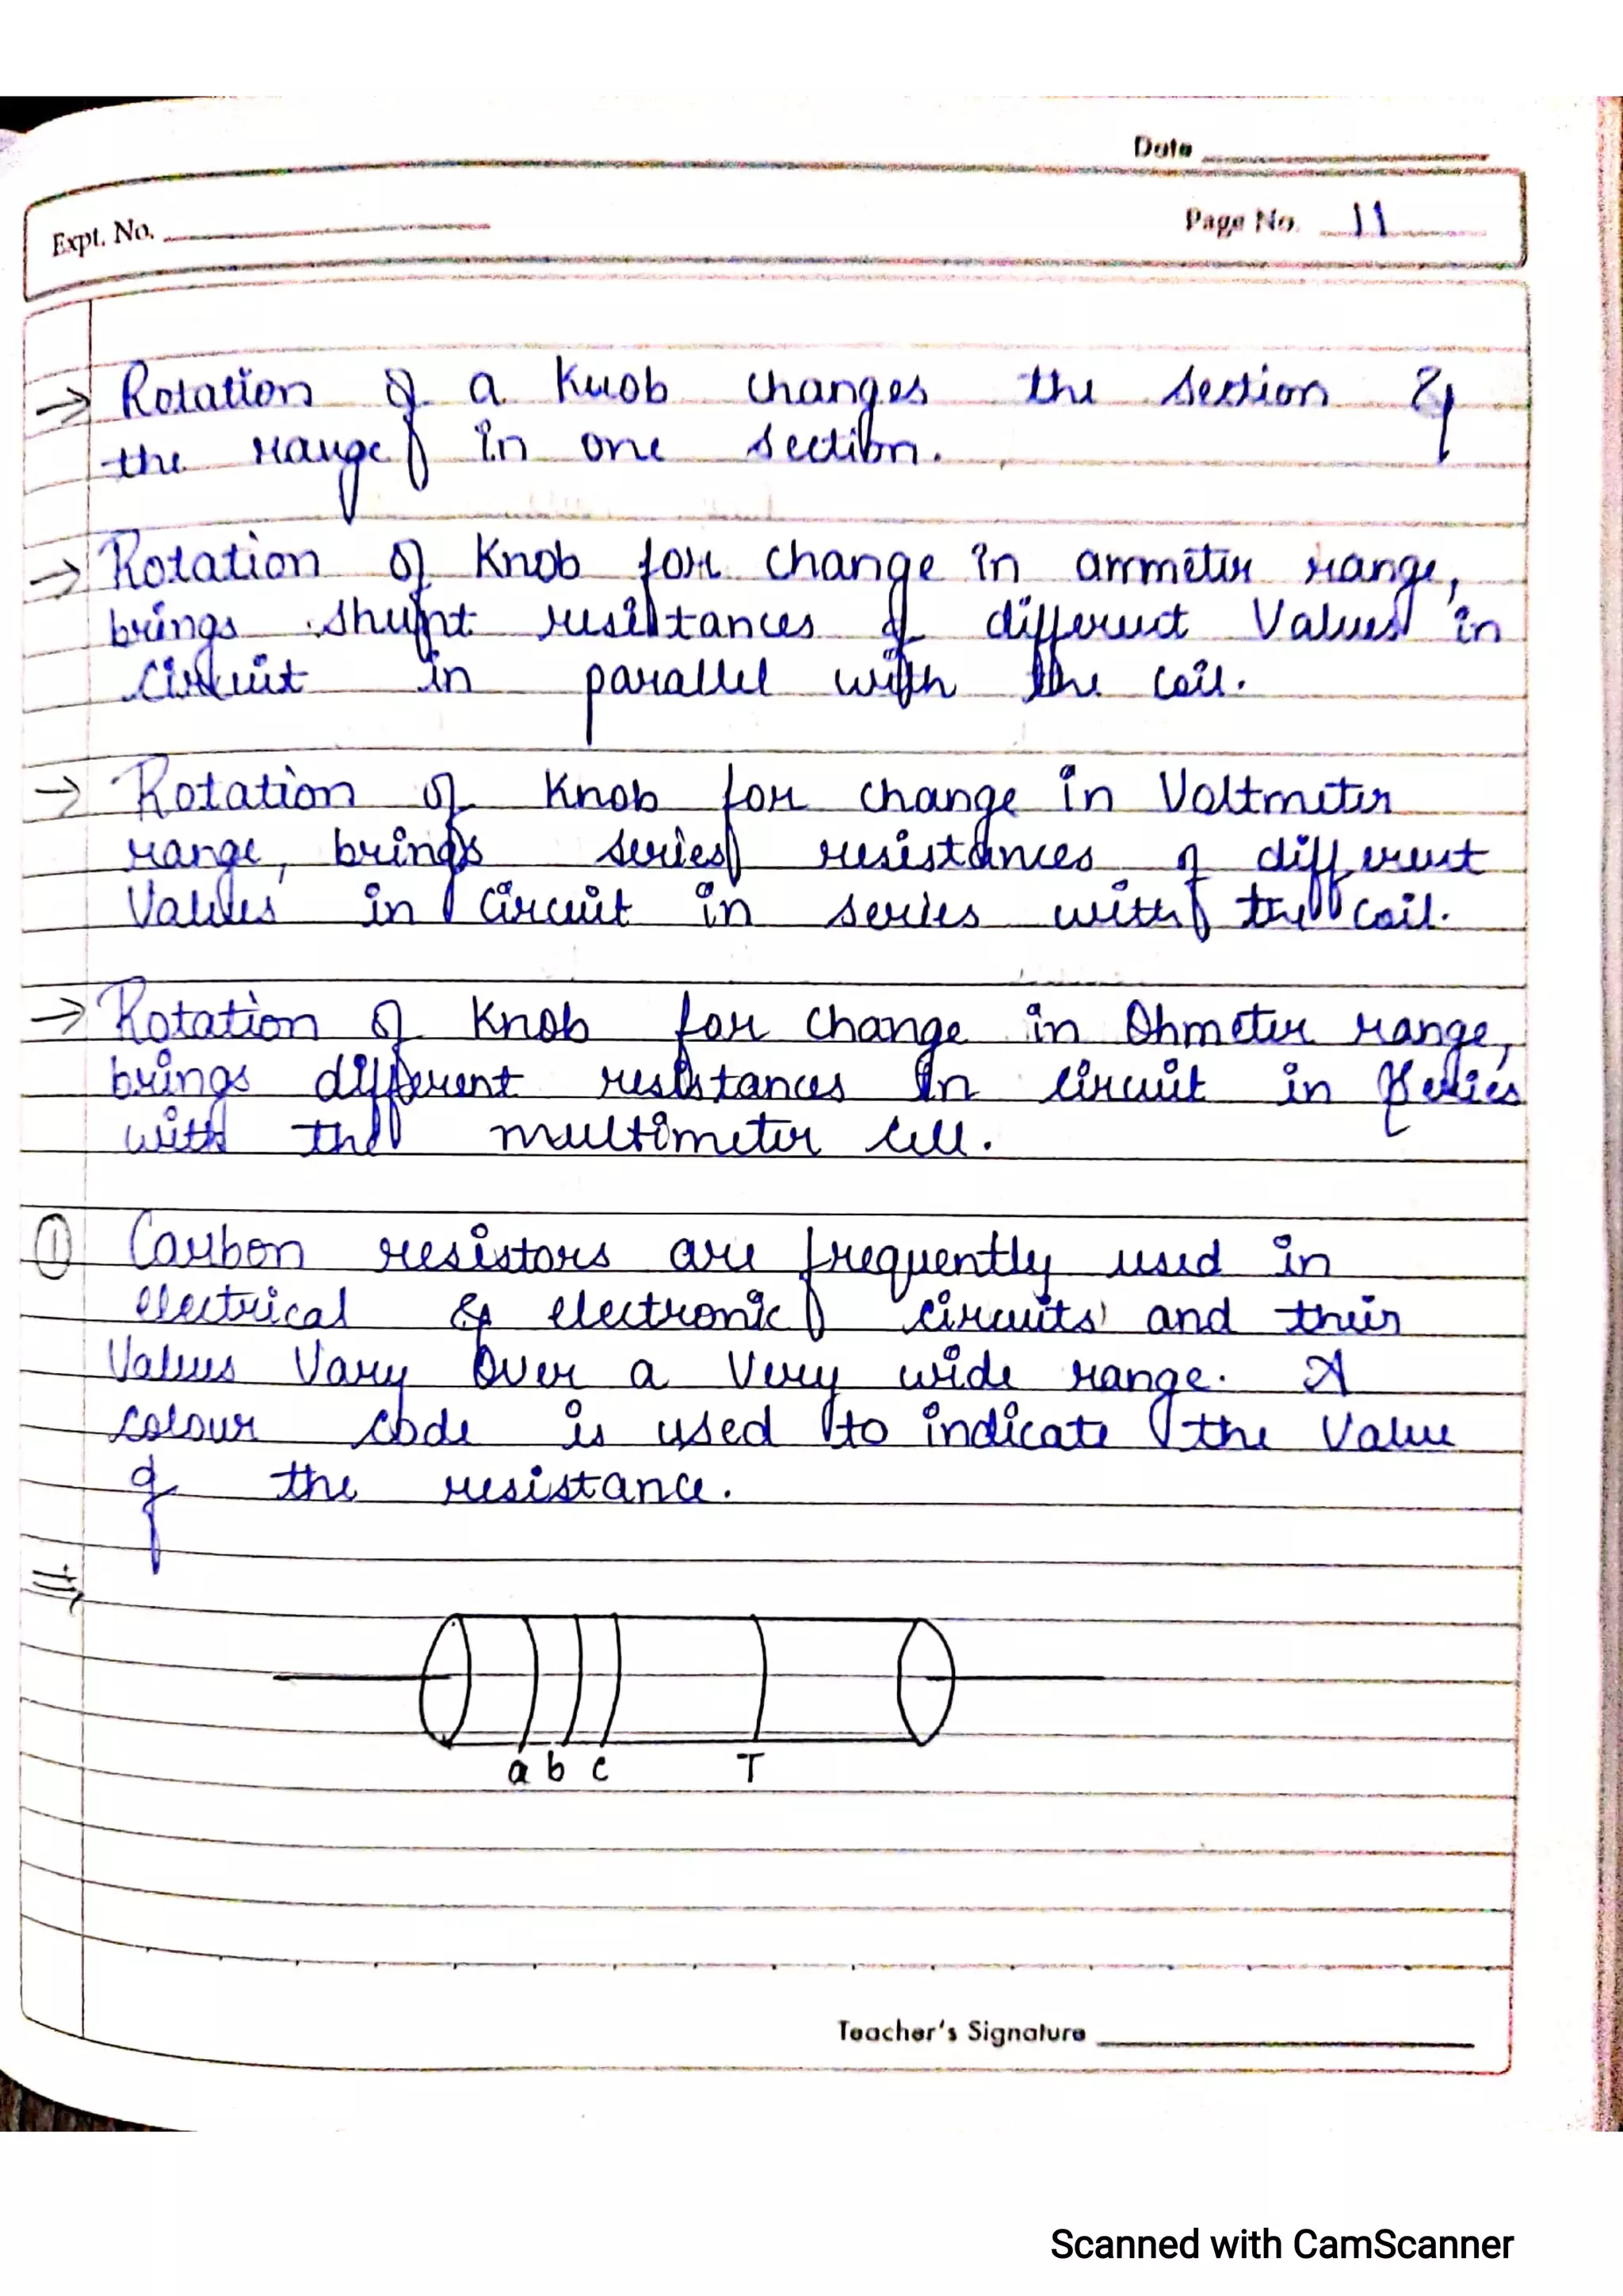 Date
Expt. No.
Page No. 11
→ Rotation of a Knob changes the section &
the range in one section.
→ Rotation of Knob for change in ammeter range,
brings shunt resistances of different Values in
Circuit in parallel with the coil.
→ Rotation of Knob for change in Voltmeter
range, brings series resistances of different
Values in Circuit in series with the coil.
→ Rotation of Knob for change in Ohmeter range,
brings different resistances in circuit in series
with the multimeter cell.
① Carbon resistors are frequently used in
electrical & electronic circuits and their
Values Vary Over a Very wide range. A
colour code is used to indicate the Value
of the resistance.
⇒
a b c T
Teacher's Signature
Scanned with CamScanner